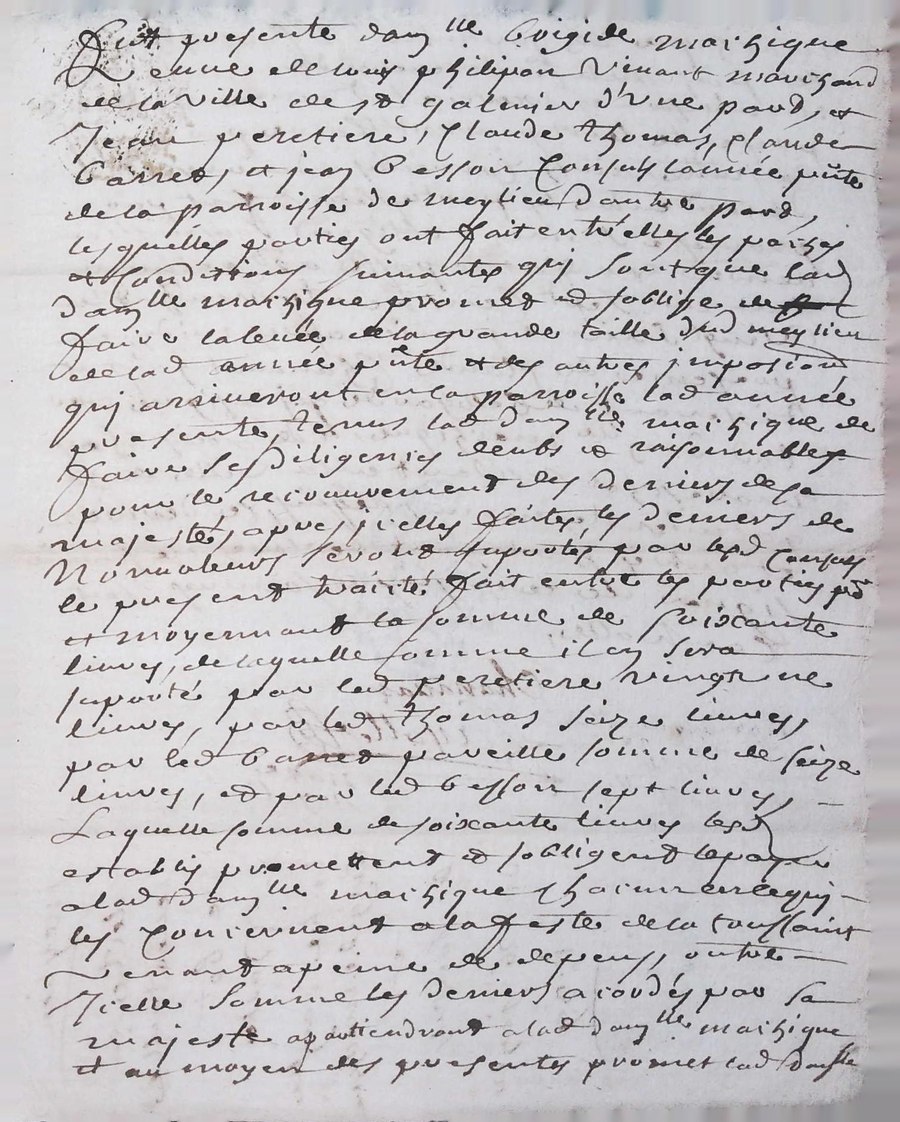 fut presente dam.lle Brigide machique
Veuve de Louis philipon vivant marchand
de la ville de st galmier d'Une part, et
Jean peretiere, Claude thomas, Claude
barret, et jean besson Consuls lannée pnte
de la parroisse de meylieu dautre part,
lesquelles parties ont fait entr'elles les paches
et Conditions suivantes qui sont que lad
dam.lle machique promet et soblige de
faire la levée de la grande taille dud meylieu
de lad année pnte et des autres impositions
qui arriveront en la parroisse lad année
presente, tenus lad dam.lle machique de
faire ses diligences deubs et raisonnables
pour le recouvrement des deniers de sa
majesté, apres jcelles faites les deniers de
Nonvaleurs seront suportés par lesd Consuls
le present traité fait entre les parties
et moyennant la somme de soixante
livres, de laquelle somme il en sera
suporté par led peretiere vingt une
livres, par led thomas seize livres,
par led barret pareille somme de seize
livres, et par led besson sept livres,
Laquelle somme de soixante livres lesd
establis promettent et sobligent le payer
a lad dam.lle machique chacun en ce qui
les Concernent a la feste de la toussaint
Venant a peine de depens, outre
Jcelle somme les deniers acordés par sa
majesté apartiendront a lad dam.lle machique
et au moyen des presentes promet lad dam.lle